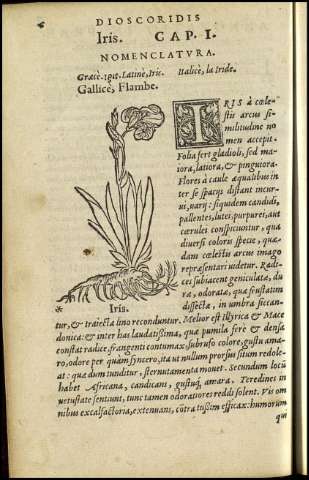 DIOSCORIDIS
Iris. CAP. I.
NOMENCLATVRA.
Græcè, ἶρις. Latinè, Iris. Italicè, la Iride.
Gallicè, Flambe.
IRIS à cœle-
stis arcus si-
militudine no
men accepit.
Folia fert gladioli, sed ma-
iora, latiora, & pinguiora.
Flores à caule æqualibus in
ter se spacijs distant incur-
ui, uarij: siquidem candidi,
pallentes, lutei, purpurei, aut
cœrulei conspiciuntur, qua
diuersi coloris specie, quæ-
dam cœlestis arcus imago
repræsentari uidetur. Radi-
ces subiacent geniculatæ, du
ræ, odoratæ, quæ frustatim
dissectæ, in umbra siccan-
Iris.
tur, & traiectæ lino reconduntur. Melior est Illyrica & Mace
donica: & inter has laudatissima, quæ pumila ferè & densa
constat radice, frangenti contumax: subrufo colore, gustu ama
ro, odore per quàm syncero, ita ut nullum prorsus situm redole-
at: quæ dum tunditur, sternutamenta mouet. Secundum locū
habet Africana, candicans, gustuq́, amara. Teredines in
uetustate sentiunt, tunc tamen odoratiores reddi solent. Vis om
nibus excalfactoria, extenuans, cōtra tussim efficax: humorum
qui